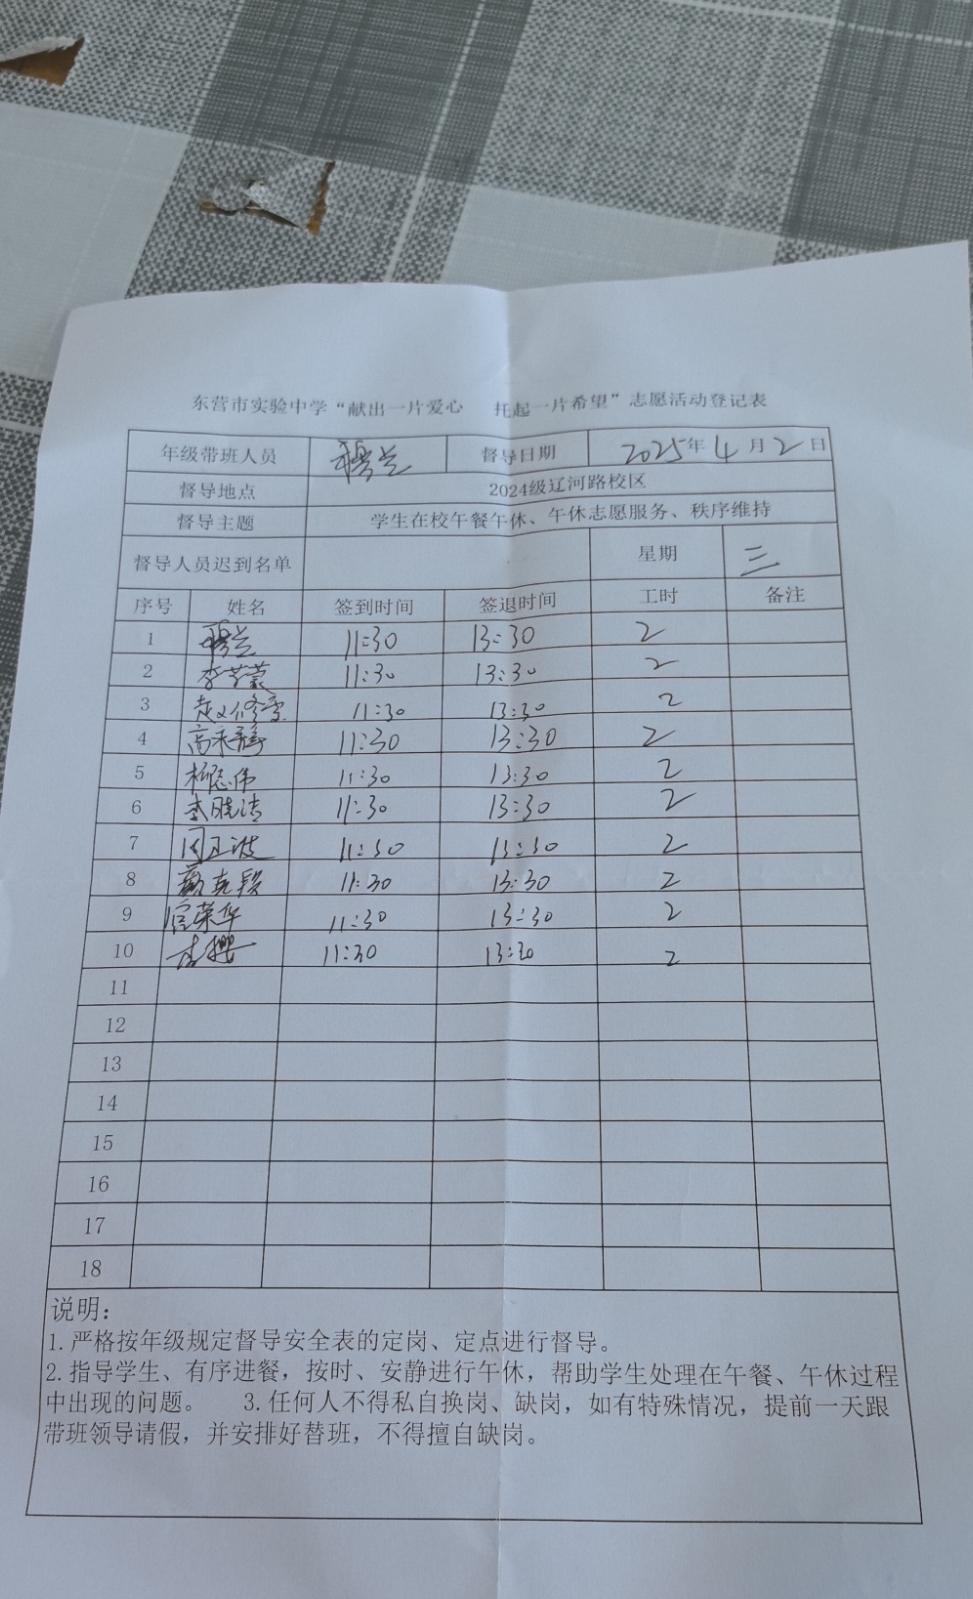 东营市实验中学“献出一片爱心 托起一片希望”志愿活动登记表
年级带班人员 穆兰 督导日期 2025年4月2日
督导地点 2024级辽河路校区
督导主题 学生在校午餐午休、午休志愿服务、秩序维持
督导人员迟到名单 星期 三
序号 姓名 签到时间 签退时间 工时 备注
1 穆兰 11:30 13:30 2
2 11:30 13:30 2
3 11:30 13:30 2
4 11:30 13:30 2
5 11:30 13:30 2
6 李晓洁 11:30 13:30 2
7 周卫波 11:30 13:30 2
8 11:30 13:30 2
9 荣华 11:30 13:30 2
10 11:30 13:30 2
11
12
13
14
15
16
17
18
说明:
1.严格按年级规定督导安全表的定岗、定点进行督导。
2.指导学生、有序进餐，按时、安静进行午休，帮助学生处理在午餐、午休过程
中出现的问题。 3.任何人不得私自换岗、缺岗，如有特殊情况，提前一天跟
带班领导请假，并安排好替班，不得擅自缺岗。